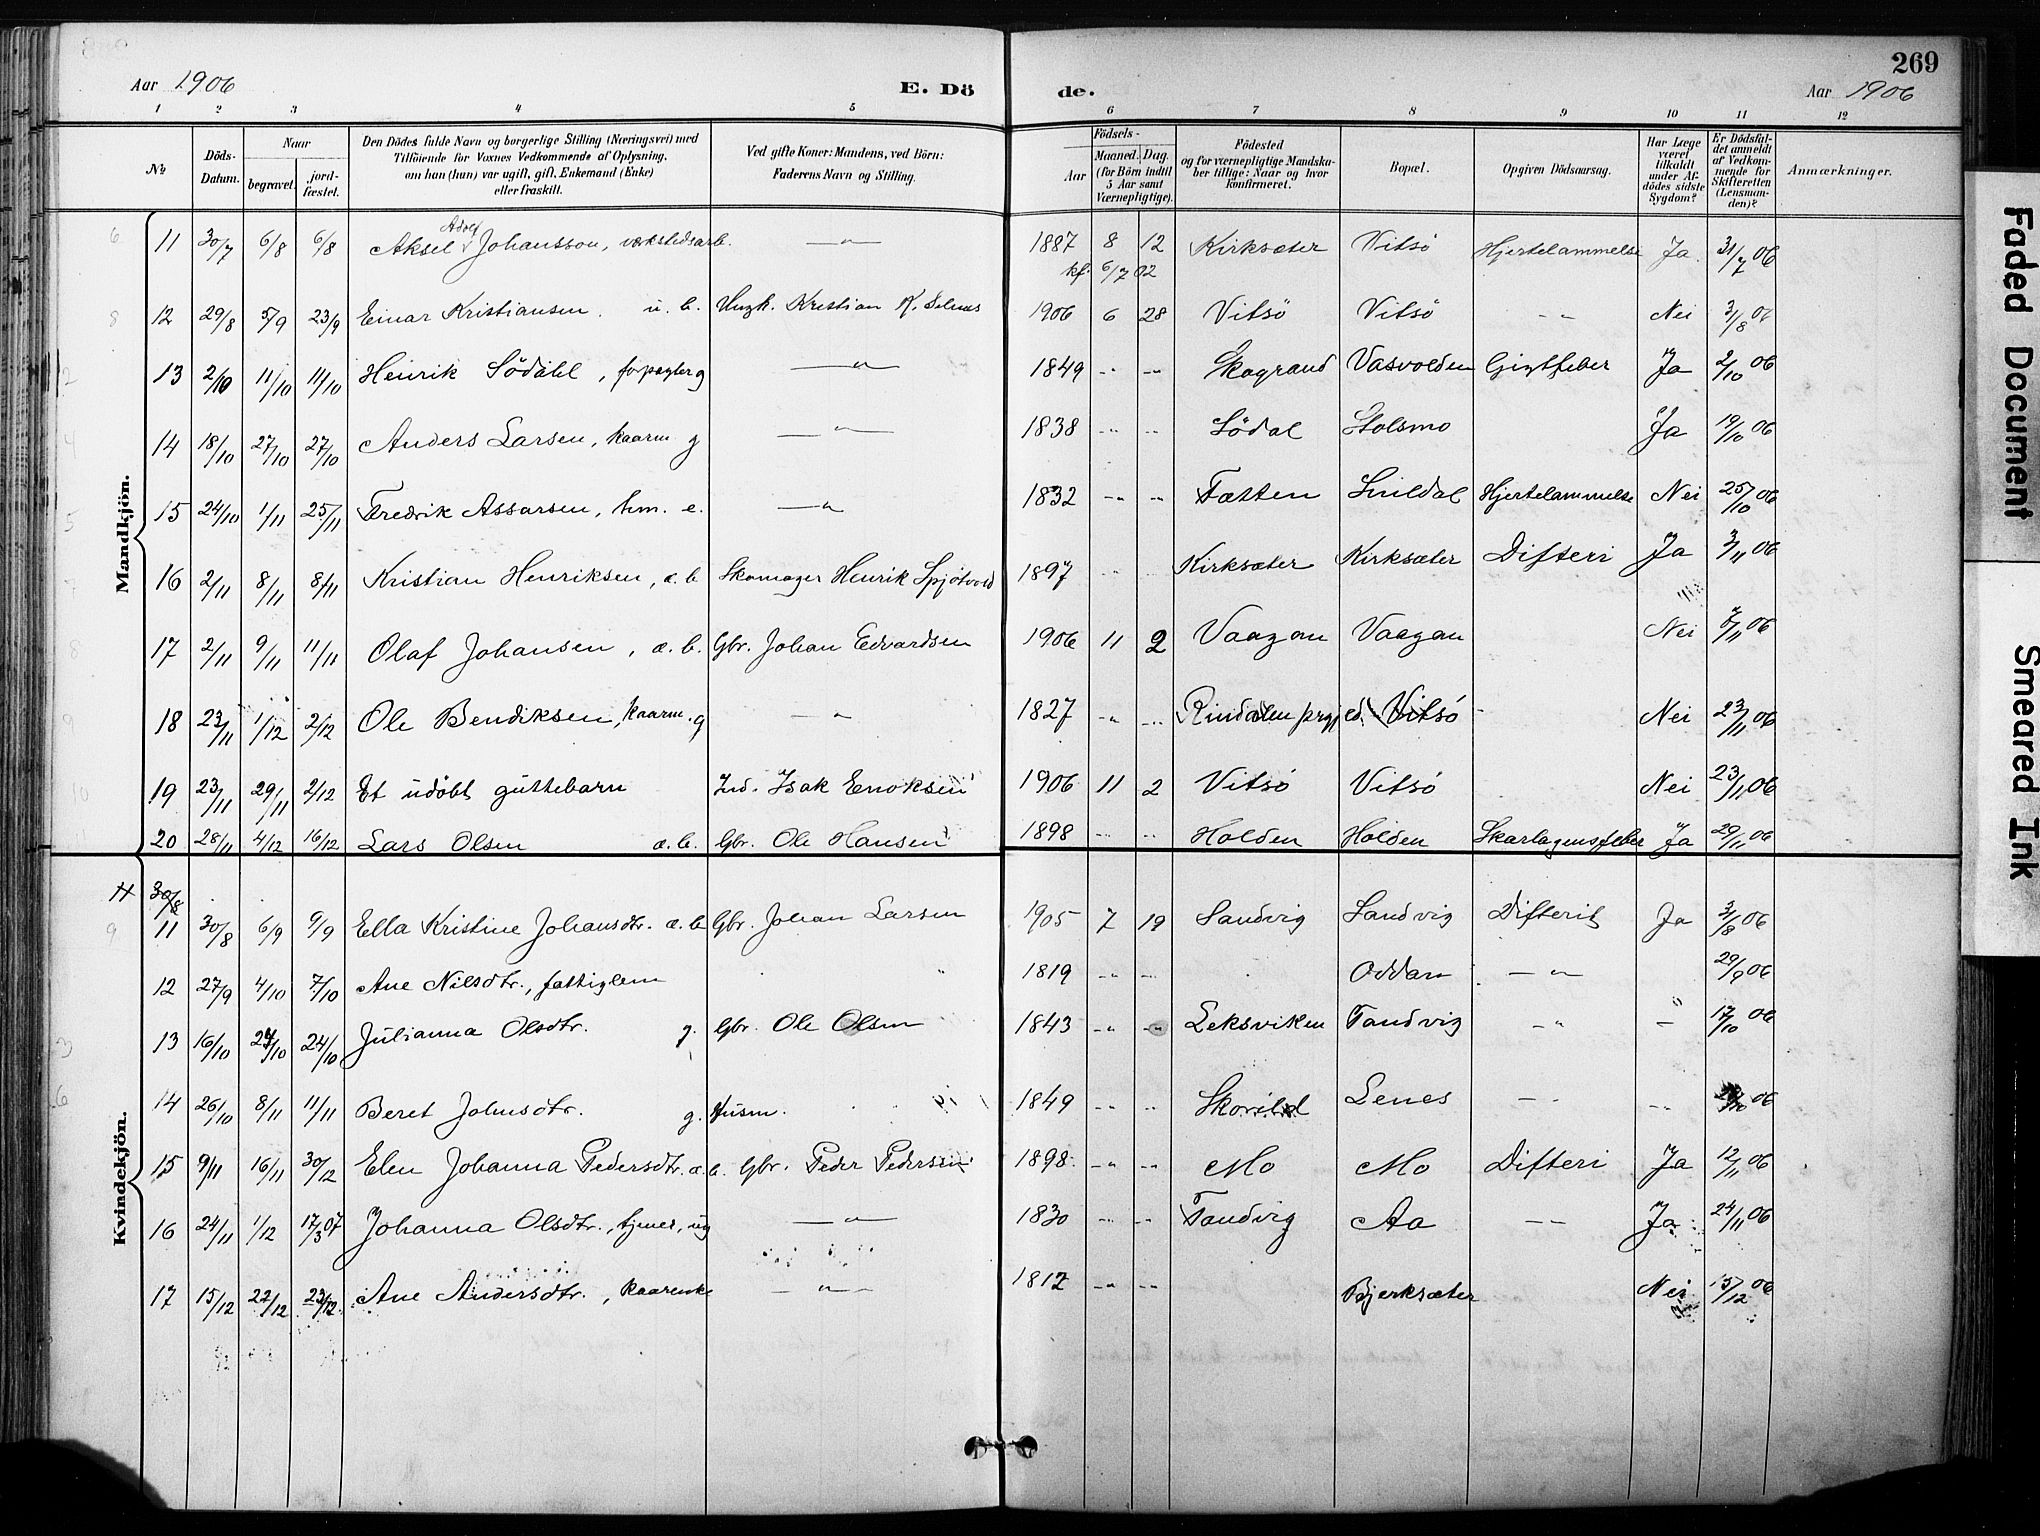 269
Aar 1906 E. Dö de. Aar 1906
1 2 3 4 5 6 7 8 9 10 11 12
№ Döds-Datum. Naar begravet. jord-fæstet. Den Dödes fulde Navn og borgerlige Stilling (Næringsvei) med Tilföiende for Voxnes Vedkommende af Oplysning, om han (hun) var ugift, gift, Enkemand (Enke) eller fraskilt. Ved gifte Koner: Mandens, ved Börn: Faderens Navn og Stilling. Födsels- Aar Maaned. Dag. (for Börn indtil 5 Aar samt Værnepligtige). Födested og for værnepligtige Mandska-ber tillige: Naar og hvor konfirmeret. Bopæl. Opgiven Dödsaarsag. Har Læge været tilkaldt under Af-dödes sidste Sygdom? Er Dödsfal-det anmeldt af Vedkom-mende for Skifteretten (Lensman-den)? Anmærkninger.
Mandkjön.
11 30/7 6/8 6/8 Aksel Adolf Johansson, verkstedsarb. — " — 1887 8 12 Kirksæter Vitsö Hjertelammelse Ja 31/7 06
kf. 6/7 02
12 29/8 5/9 23/9 Einar Kristiansen u. b. Ungk. Kristian K. Selnes 1906 6 28 Vitsö Vitsö - - Nei 3/8 06
13 2/10 11/10 11/10 Henrik Södahl, forpagter g — " — 1849 - " - - " - Skogrand Vasvolden Gigtfeber Ja 2/10 06
14 18/10 27/10 27/10 Anders Larsen, kaarm. g — " — 1838 - " - - " - Södal Stolsmo Ja 19/10 06
15 24/10 1/11 25/11 Fredrik Assarsen, hm. e. — " — 1832 - " - - " - Fætten Snildal Hjertelammelse Nei 25/10 06
16 2/11 8/11 8/11 Kristian Henriksen, æ. b. Skomager Henrik Spjötvold 1897 - " - - " - Kirksæter Kirksæter Difteri Ja 3/11 06
17 2/11 9/11 11/11 Olaf Johansen, æ. b. Gbr. Johan Edvardsen 1906 11 2 Vaagan Vaagan Nei /11 06
18 23/11 1/12 2/12 Ole Bendiksen, kaarm. g — " — 1827 - " - - " - Rindalen prgjed. Vitsö - Nei 23/11 06
19 23/11 29/11 2/12 Et udöbt guttebarn Ind. Isak Enoksen 1906 11 2 Vitsö Vitsö Nei 23/11 06
20 28/11 4/12 16/12 Lars Olsen æ. b. Gbr. Ole Hansen 1898 - " - - " - Holden Holden Skarlagensfeber Ja 29/11 06
Kvindekjön.
11 30/8
11 30/8 6/9 9/9 Ella Kristine Johansdtr. æ. b Gbr. Johan Larsen 1905 7 19 Sandvig Sandvig Difterit Ja 3/8 06
12 27/9 4/10 7/10 Ane Nilsdtr., fattiglem 1819 - " - - " - Oddan — " — 29/9 06
13 16/10 24/10 24/10 Julianna Olsdtr. g. Gbr. Ole Olsen 1843 - " - - " - Leksviken Tandvig - " - — 17/10 06
14 26/10 8/11 11/11 Beret Johnsdtr. g. Husm. 1849 - " - - " - Lenes - - /10 06
15 9/11 16/11 30/12 Elen Johanna Pedersdtr. æ. b. Gbr. Peder Pedersen 1898 - " - - " - Mo Mo Difteri Ja 12/11 06
16 24/11 1/12 17/3 07 Johanna Olsdtr., tjener, ug — " — 1830 - " - - " - Tandvig Aa — — Ja 24/11 06
17 15/12 22/12 23/12 Ane Andersdtr., kaarenke — " — 1812 - " - - " - Bjerksæter Nei 15/12 06
Faded Document
Smeared Ink